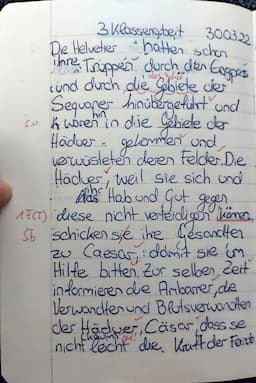 3. Klassenarbeit 30.03.22
Die Helvetier hatten schon
ihre Truppen durch den Engpass
und durch die Gebiete der
Sequaner hinübergeführt und
waren in die Gebiete der
hin
Häduer gekommen und
verwüsteten deren Felder. Die
Häduer, weil sie sich und
ihr Hab und Gut gegen
17(T) diese nicht verteidigen können,
5b schicken sie ihre Gesandten
zu Caesar, damit sie um
Hilfe bitten. Zur selben Zeit
informieren die Ambarrer, die
Verwandten und Blutsverwandten
der Häduer, Cäsar, dass se
nicht leicht die Kraft der Feinde